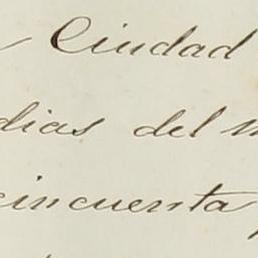 Ciudad
dias del
cincuenta